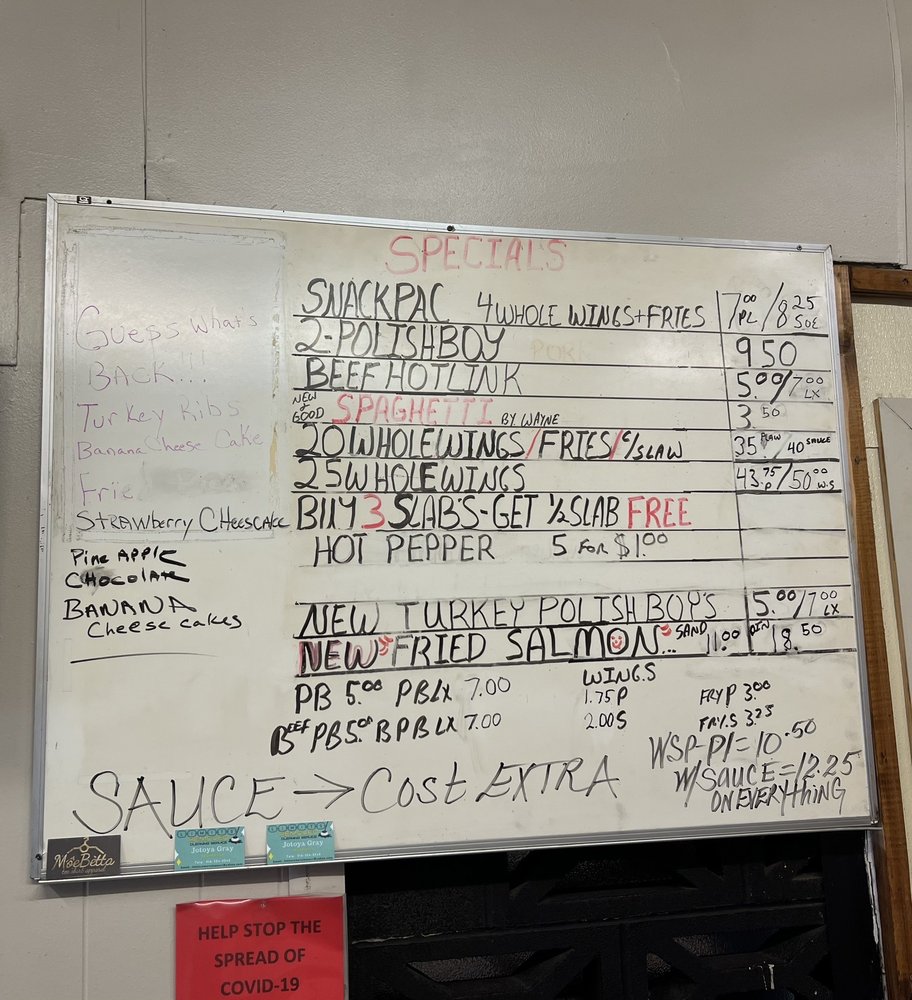 SPECIALS
SNACKPAC 4 WHOLE WINGS+FRIES 7.00 PL / 8.25 SCE
2-POLISHBOY 9 50
BEEF HOTLINK 5.00/7.00 LX
NEW & GOOD SPAGHETTI BY WAYNE 3.50
20 WHOLEWINGS/FRIES/C/SLAW 35 PLAIN/40 SAUCE
25 WHOLEWINGS 43.75 P/50.00 W.S
BUY 3 SLAB'S-GET 1/2 SLAB FREE
HOT PEPPER 5 FOR $1.00
NEW TURKEY POLISH BOY'S 5.00/7.00 LX
NEW FRIED SALMON... SAND 11.00 DIN 18.50
PB 5.00 PBLX 7.00
BEEF PB 5.00 BPBLX 7.00
WINGS
1.75 P
2.00 S
FRY P 3.00
FRY.S 3.25
WSP-Pl=10.50
W/SAUCE=12.25
ON EVERYthiNG
SAUCE → Cost EXTRA
Guess what's
BACK...
Turkey Ribs
Banana Cheese Cake
Frie
STRAWBerry CHeesCAKE
Pine APPLE
CHOCOLATE
BANANA
Cheese cakes
MoeBetta
Jotoya Gray
Jotoya Gray
HELP STOP THE
SPREAD OF
COVID-19